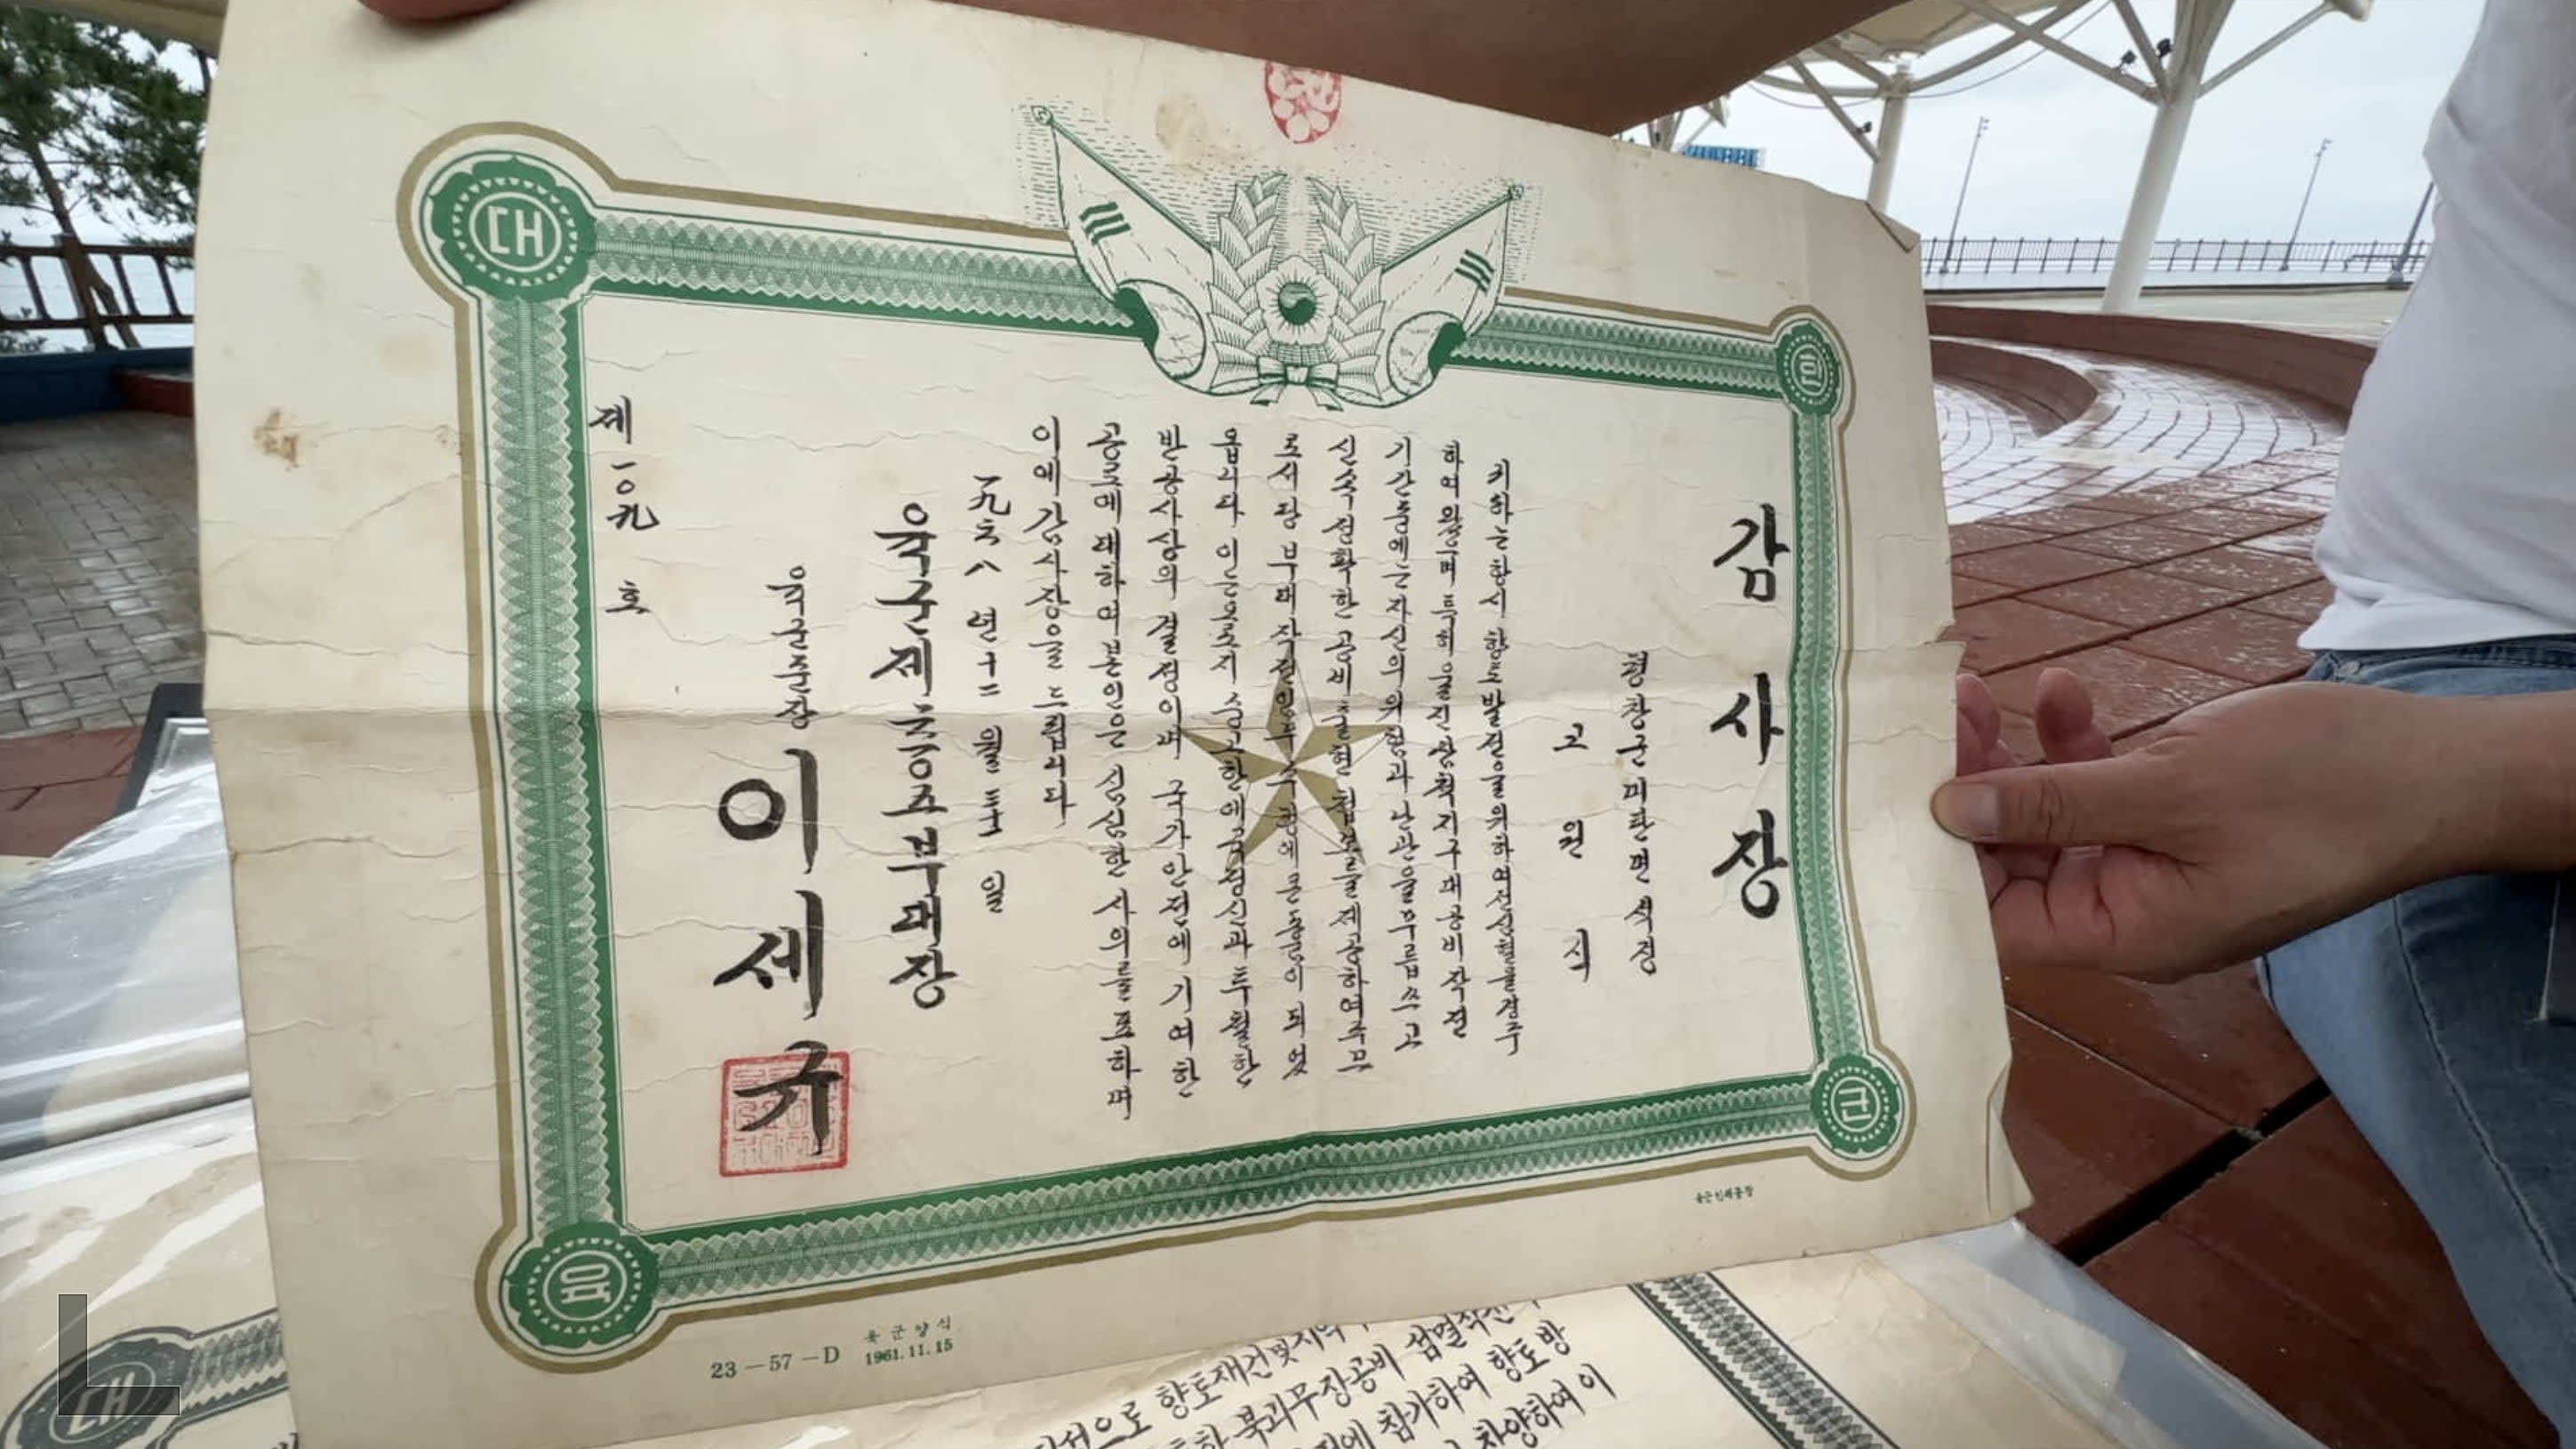 감사장
평창군 미탄면 석정
고원식
귀하는 항시 향토발전을 위하여 전심혈을 경주
하여 왔으며 특히 울진 삼척지구 대공비 작전
기간중에는 자신의 위험과 난관을 무릅쓰고
신속 정확한 공비 출현 첩보를 제공하여주므
로서 당 부대 작전임무 수행에 큰 도움이 되었
읍니다 이는 오로지 숭고한 애국정신과 투철한
반공사상의 결정이며 국가안전에 기여한
공로에 대하여 본인은 심심한 사의를 표하며
이에 감사장을 드립니다
一九六八 년 十二 월 三十 일
육군 제 중五부대장
육군준장 이세규
제 一○九 호
대
한
민
국
육군인쇄공창
23-57-D 육군양식
1961. 11. 15
으로 향토재건및지역
북괴무장공비 섬멸작전
에 참가하여 향토방
찬양하여 이
대
L